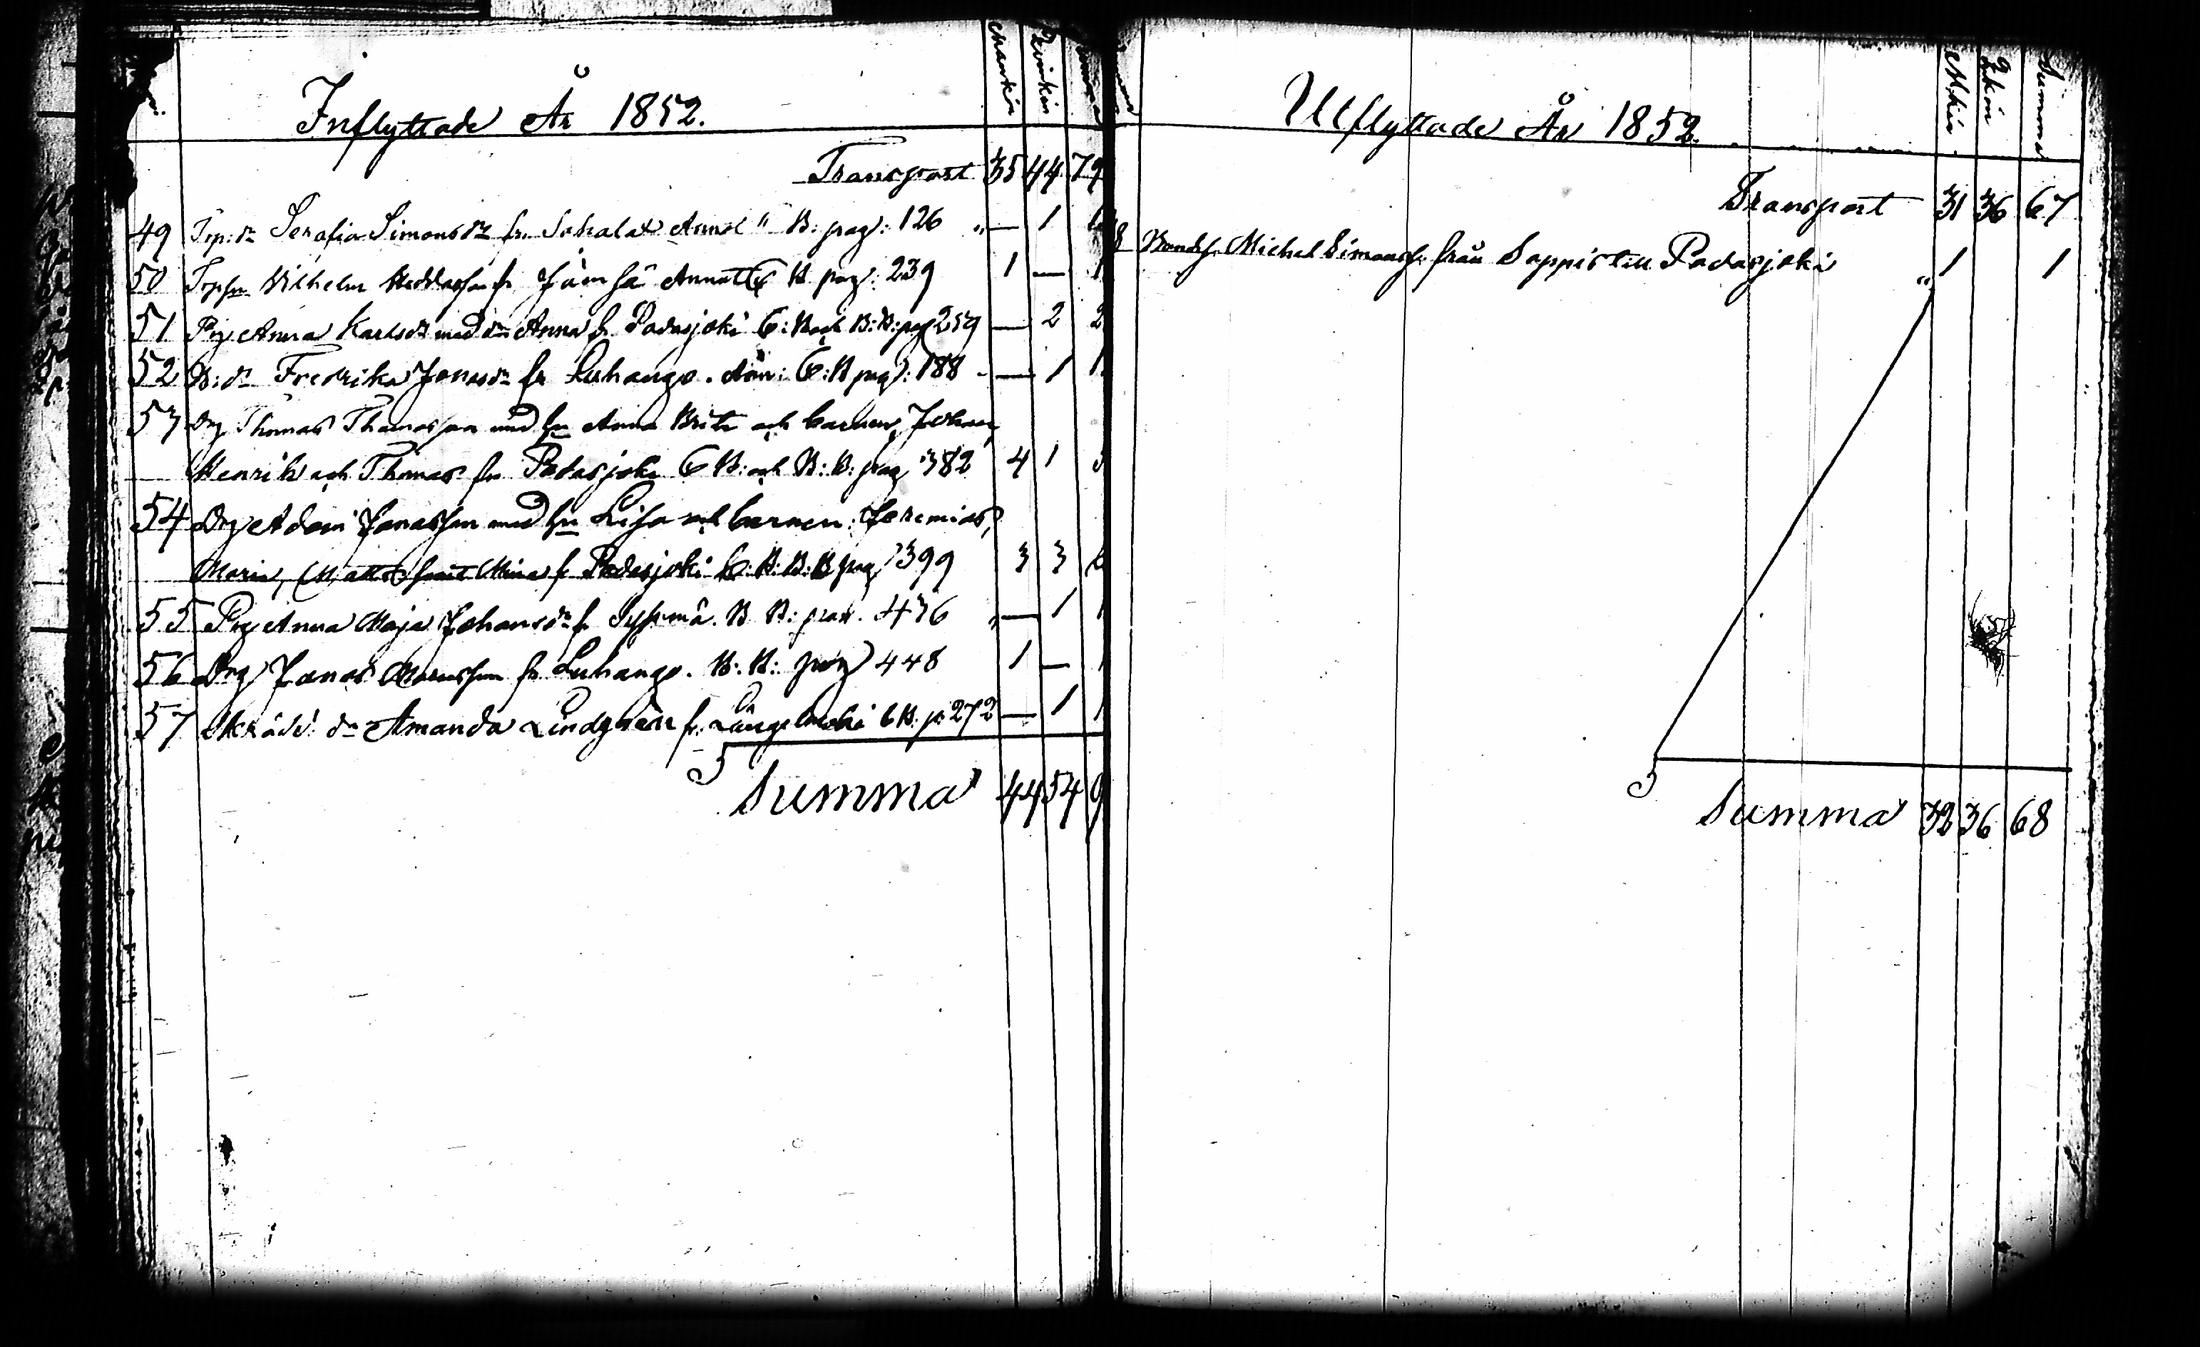 Mankön Qvinkön Summa
Inflyttade År 1852.
Transport 35 44 79
49 Trp: dr Serafia Simonsdr fr. Sahalax Annot " B: pag: 126 " — 1 1
50 Trpsn Vilhelm fr Jämsä Annott C B pag: 239 1 — 1
51 Pig Anna Karlsdr med dr Anna fr Padasjoki C: B och B: B: pag 259 — 2 2
52 B: dr Fredrika Jonasdr fr Luhango. Ann: C: B pag: 188 - — 1 1
53 Drg Thomas Thomasson med hu Anna Brita och barnen, Johan,
Henrik och Thomas fr Padasjoki C B: och B: B: pag 382 4 1 5
54 Drg Adam Jonasson med hu Lisa och barnen: Jeremias,
Maria, Matts samt Mina fr Padasjoki C: B: B: B pag 399 3 3 6
55 Pig Anna Maja Johansdr fr Sysmä. B B: pag. 436 " — 1 1
56 Drg Jonas fr Luhango. B: B: pag 448 1 — 1
57 Skräd: dr Amanda Lindgren fr. Längelmäki C B. p: 272 — 1 1
Summa 44 54 9
M.kön Q.kön Summa
Utflyttade År 1852.
Transport 31 36 67
8 Bondes. Michel Simonss. från Sappis till Padasjoki " 1 1
Summa 32 36 68